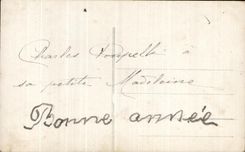 Charles à
sa petite Madeleine
Bonne année